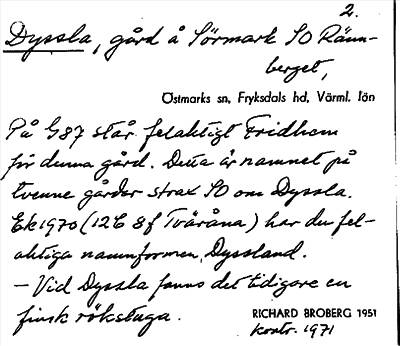 2.
Dyssla, gård å Sörmark SO Ränn-
berget,
Östmarks sn, Fryksdals hd, Värml. län
På G87 står felaktigt Fridhem
för denna gård. Detta är namnet på
tvenne gårder strax SO om Dyssla.
Ek 1970 (12C 8f Tväråna) har den fel-
aktiga namnformen Dyssland.
- Vid Dyssla fanns det tidigare en
finsk rökstuga.
RICHARD BROBERG 1951
kontr. 1971